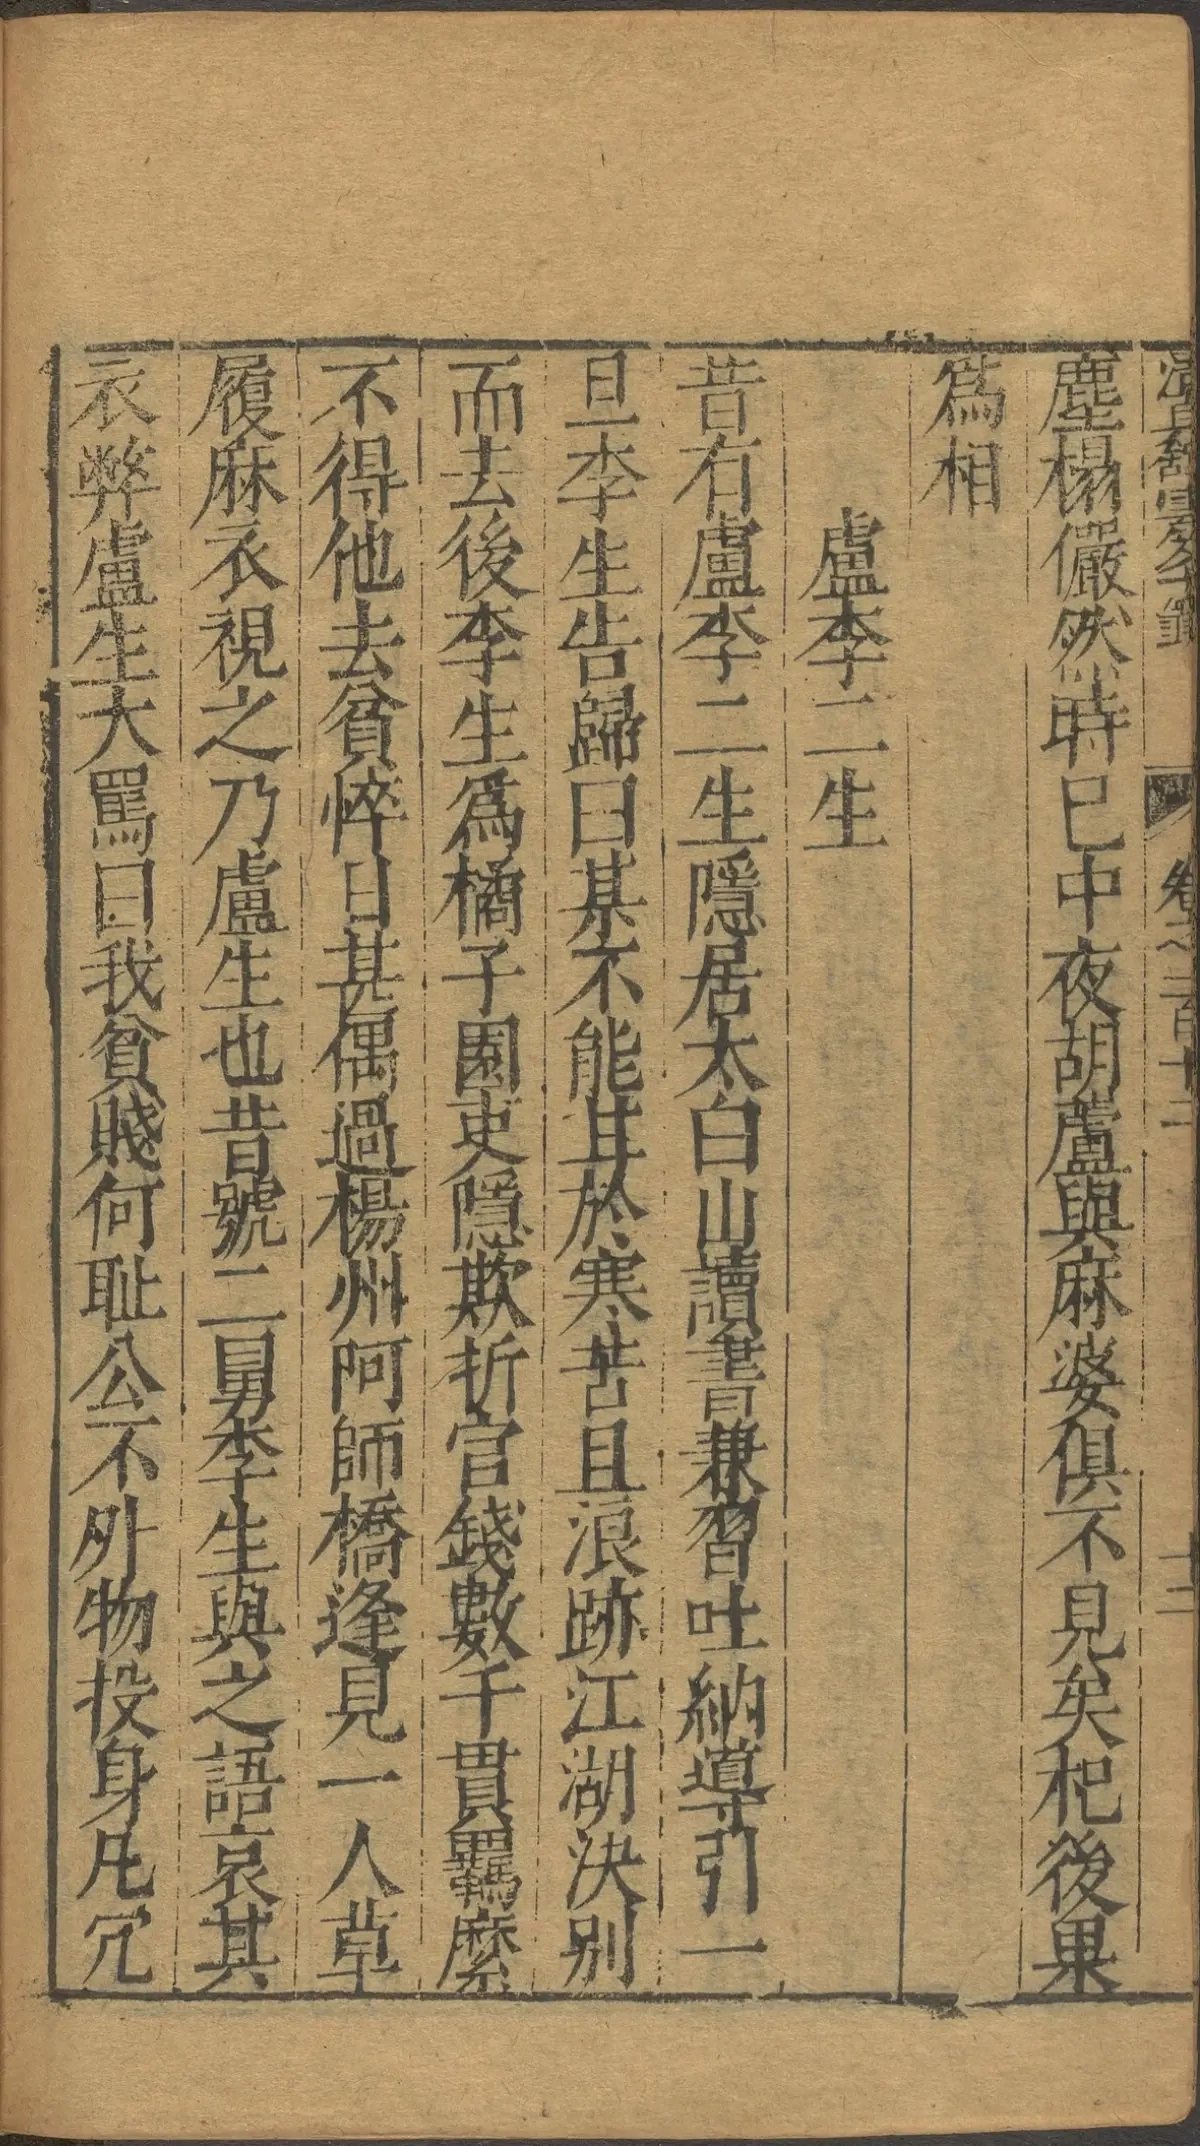 卷之一百十二 十二
塵榻儼然時已中夜胡蘆與麻婆俱不見矣杞後果
爲相
盧李二生
昔有盧李二生隱居太白山讀書兼習吐納導引一
旦李生告歸曰某不能甘於寒苦且浪跡江湖決别
而去後李生爲橘子園吏隱欺折官錢數千貫羈縻
不得他去貧悴日甚偶過楊州阿師橋逢見一人草
履麻衣視之乃盧生也昔號二舅李生與之語哀其
衣弊盧生大罵曰我貧賤何耻公不外物投身凡冗